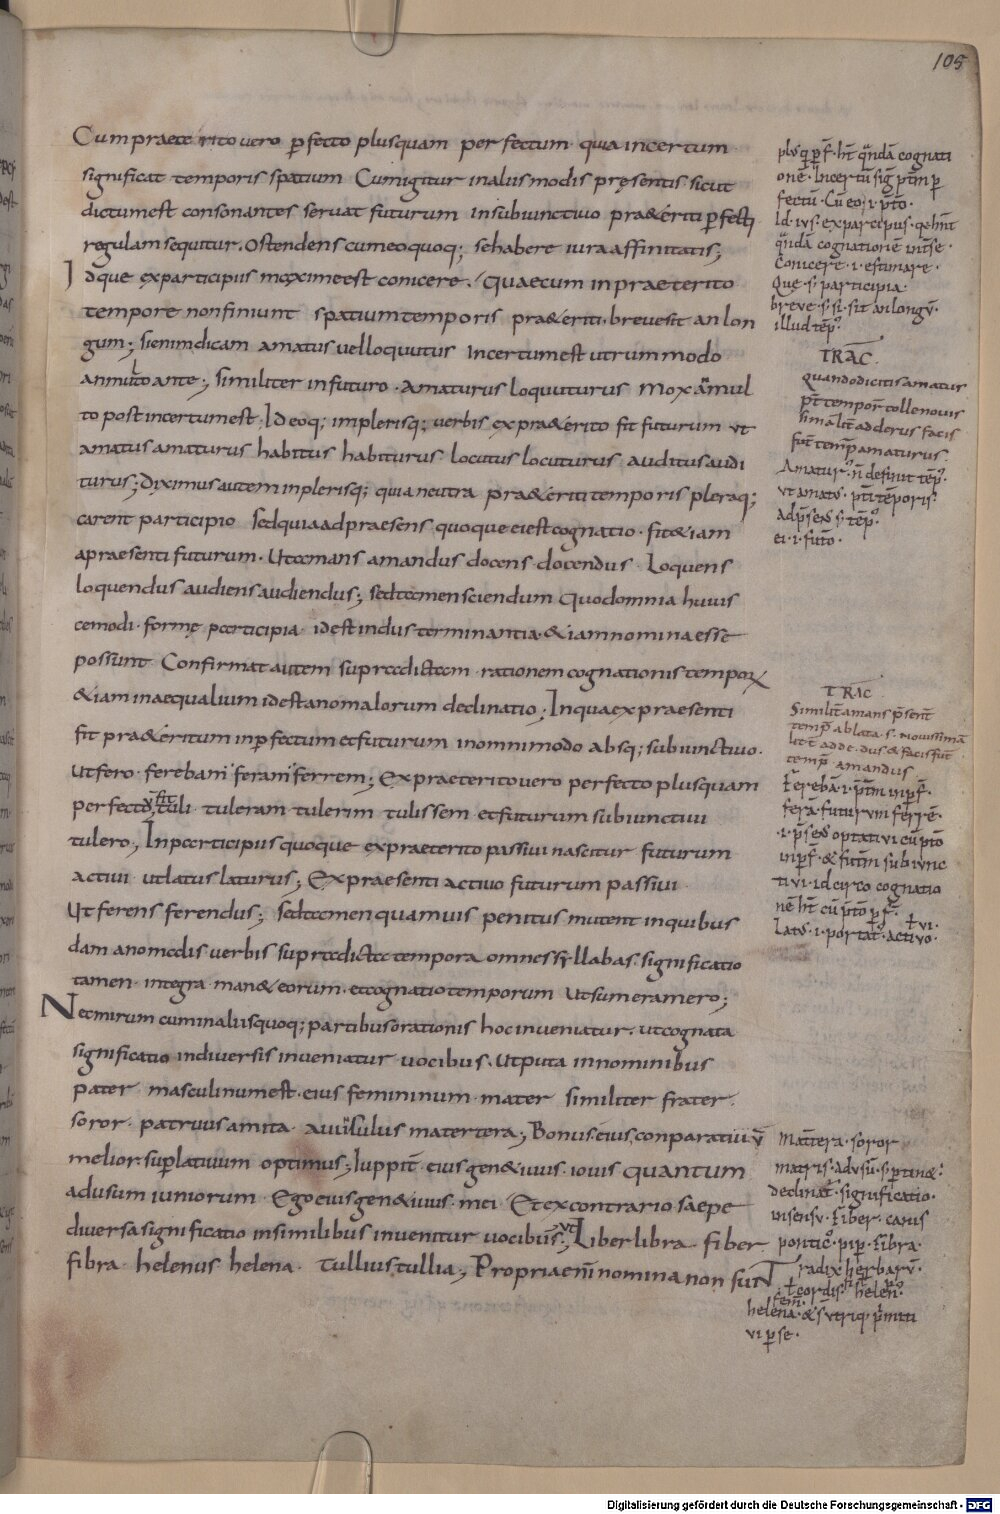 105
Cum praeterito vero p̲fecto plusquam perfectum quia incertum
significat temporis spatium Cum igitur in aliis modis pręsentis sicut
dictum est consonantes servat futurum in subiunctivo praeteriti p̲fecti
regulam sequitur. Ostendens cum eo quoq; se habere iura affinitatis;
Idque ex participiis maxime est conicere. Quaecum in praeterito
tempore non finiunt spatium temporis praeteriti. breve sit an lon
gum; si enim dicam amatus vel loquutus Incertum est utrum modo
an multo ante; similiter in futuro. Amaturus loquuturus mox an mul
to post incertum est. Ideoq; in plerisq; verbis ex praeterito fit futurum ut
amatus amaturus habitus habiturus locutus locuturus auditus audi
turus; Diximus autem in plerisq; quia neutra praeteriti temporis pleraq;
carent participio sed quia ad praesens quoque ei est cognatio. fit & iam
a praesenti futurum. Ut amans amandus docens docendus. Loquens
loquendus audiens audiendus; sed tamen sciendum quod omnia huius
cemodi. formę participia id est in dus terminantia & iam nomina esse
possunt. Confirmat autem supradictam rationem cognationis tempoꝝ
& iam inaequalium id est anomalorum declinatio; In qua ex praesenti
fit praeteritum inp̲fectum et futurum in omni modo absq; subiunctivo.
ut fero. ferebam feram ferrem; Ex praeterito vero perfecto plusquam
perfecto, ut fit tuli tuleram tulerim tulissem et futurum subiunctivi
tulero; In participiis quoque ex praeterito passivi nascitur futurum
activi ut latus laturus; Ex praesenti activo futurum passivi
Ut ferens ferendus; sed tamen quamvis penitus mutent in quibus
dam anomalis verbis supradicta tempora omnes syllabas. significatio
tamen integra man& eorum. et cognatio temporum ut sum eram ero;
Nec mirum cum in aliis quoq; partibus orationis hoc inveniatur. ut cognata
significatio in diversis inveniatur vocibus. Ut puta in nominibus
pater masculinum est. eius femininum mater similiter frater.
soror. patruus amita. avunculus matertera; Bonus eius conparativū
melior. superlativum optimus; Iuppit̄. eius gen&ivus. iovis quantum
ad usum iuniorum. Ego eius gen&ivus. mei. Et ex contrario saepe
diversa significatio in similibus invenitur vocibus; ut Liber libra. fiber
fibra helenus helena. Tullius. tullia; Propria eni̅ nomina non sunt
plusq̄ p̲f. hn̄t quandā cognati
onē. Incertū sig̅ ptm̄ p̲
fectū. Cū eo .i. p̄to.
Id .iuſ. ex parcipiis. q̄ hn̄t
quandā cognationē inter se.
Conicere .i. estimare.
Que .s. participia.
breve .s. si. sit an longū.
illud temp̄.
TRAC
Quando dicitis amatus
p̄t tempor̄. tolle novis
simā litt̄ adde rus facis
fut̄ temp̄ amaturus.
Amatur̄ n̄ definit temp̄.
ut amatus. pt̄i tēporis.
Ad p̄sens .s. temp̄.
ei .i. futō.
TRAC
Similit̄ amans p̄sent̄
temp̄ ablata .s. novissimā
litt̄ adde. dus & facis fut̄
temp̄ amandus
Ferebā .i. p̄tm inp̲f.
ferā. futurum ferrē.
.i. p̄sens optativi cū p̄to
inp̲f. & futm̄ subiunc
tivi. idcirco cognatio
nē hn̄t cū p̄to p̲f.
Latus .i. portat̄. activo. ł vi.
Mat̄tera. soror
matris. ad usū .s. p̲tin&.
declinat̄. significatio.
in sensu. Fiber. canis
pontic̄. pip̲. Fibra.
radix herbarū.
ł cordis. helen̄.
helena. & s̄ utriq; p̄miti
vi p̲ se.
Digitalisierung gefördert durch die Deutsche Forschungsgemeinschaft - DFG